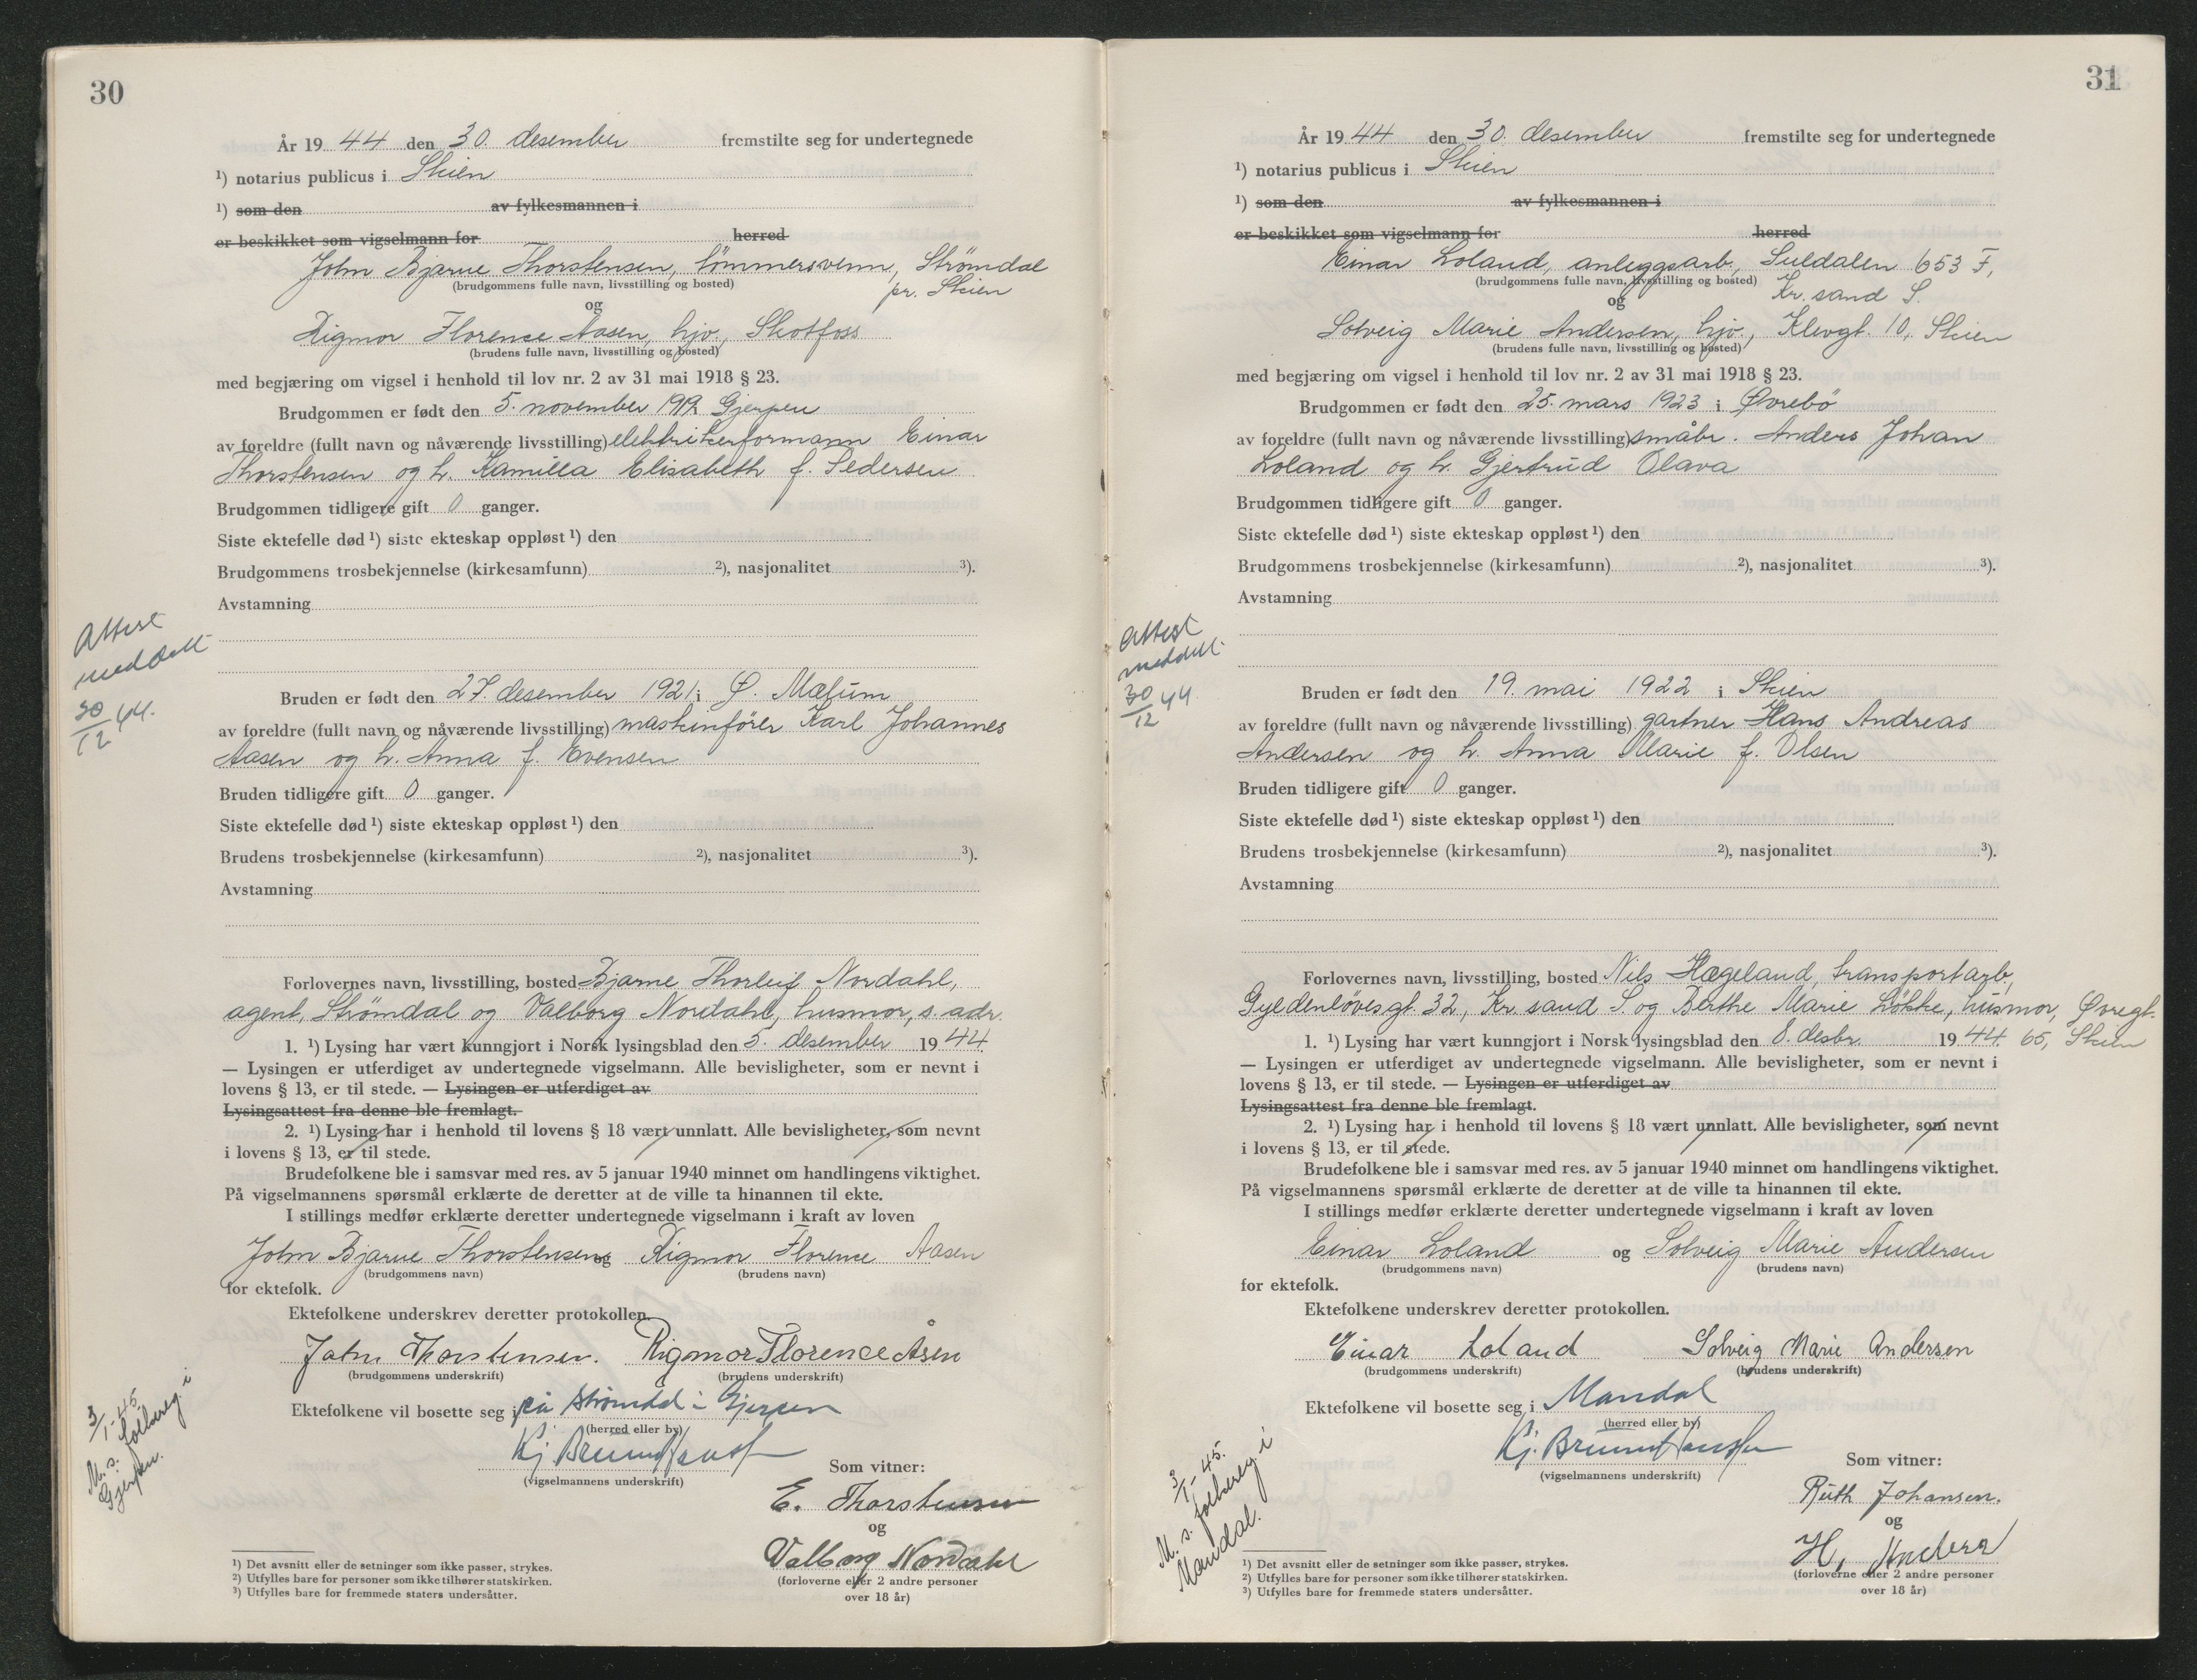 30
År 19 44 den 30. desember fremstilte seg for undertegnede
¹) notarius publicus i Skien
¹) som den av fylkesmannen i
er beskikket som vigselmann for herred
John Bjarne Thorstensen, tömmersvenn, Strømdal
(brudgommens fulle navn, livsstilling og bosted) pr. Skien
og
Rigmor Florence Aasen, hjv., Skotfoss
(brudens fulle navn, livsstilling og bosted)
med begjæring om vigsel i henhold til lov nr. 2 av 31 mai 1918 § 23.
Brudgommen er født den 5. november 1912 Gjerpen
av foreldre (fullt navn og nåværende livsstilling) elektrikerformann Einar
Thorstensen og h. Kamilla Elisabeth f. Pedersen
Brudgommen tidligere gift 0 ganger.
Siste ektefelle død ¹) siste ekteskap oppløst ¹) den
Brudgommens trosbekjennelse (kirkesamfunn) ²), nasjonalitet ³).
Avstamning
Attest
meddelt
30/12 44.
Bruden er født den 27. desember 1921 i Ø. Mælum
av foreldre (fullt navn og nåværende livsstilling) maskinfører Karl Johannes
Aasen og h. Anna f. Evensen
Bruden tidligere gift 0 ganger.
Siste ektefelle død ¹) siste ekteskap oppløst ¹) den
Brudens trosbekjennelse (kirkesamfunn) ²), nasjonalitet ³).
Avstamning
Forlovernes navn, livsstilling, bosted Bjarne Thorleif Nordahl,
agent, Strømdal og Valborg Nordahl, husmor, s. adr.
1. ¹) Lysing har vært kunngjort i Norsk lysingsblad den 5. desember 1944.
— Lysingen er utferdiget av undertegnede vigselmann. Alle bevisligheter, som er nevnt i
lovens § 13, er til stede. — Lysingen er utferdiget av
Lysingsattest fra denne ble fremlagt.
2. ¹) Lysing har i henhold til lovens § 18 vært unnlatt. Alle bevisligheter, som nevnt
i lovens § 13, er til stede.
Brudefolkene ble i samsvar med res. av 5 januar 1940 minnet om handlingens viktighet.
På vigselmannens spørsmål erklærte de deretter at de ville ta hinannen til ekte.
I stillings medfør erklærte deretter undertegnede vigselmann i kraft av loven
John Bjarne Thorstensen og Rigmor Florence Aasen
(brudgommens navn) (brudens navn)
for ektefolk.
Ektefolkene underskrev deretter protokollen.
John Thorstensen. Rigmor Florence Åsen
(brudgommens underskrift) (brudens underskrift)
Ektefolkene vil bosette seg i på Strømdal i Gjerpen
(herred eller by)
(vigselmannens underskrift)
3/1-45
M. s. folkereg. i
Gjerpen.
Som vitner:
E. Thorstensen
og
Valborg Nordahl
(forloverne eller 2 andre personer
over 18 år)
¹) Det avsnitt eller de setninger som ikke passer, strykes.
²) Utfylles bare for personer som ikke tilhører statskirken.
³) Utfylles bare for fremmede staters undersåtter.
31
År 19 44 den 30. desember fremstilte seg for undertegnede
¹) notarius publicus i Skien
¹) som den av fylkesmannen i
er beskikket som vigselmann for herred
Einar Loland, anleggsarb., Suldalen 653 F,
(brudgommens fulle navn, livsstilling og bosted) Kr. sand S.
og
Solveig Marie Andersen, hjv., Klevgt. 10, Skien
(brudens fulle navn, livsstilling og bosted)
med begjæring om vigsel i henhold til lov nr. 2 av 31 mai 1918 § 23.
Brudgommen er født den 25. mars 1923 i Øvrebö
av foreldre (fullt navn og nåværende livsstilling) småbr. Anders Johan
Loland og h. Gjertrud Olava
Brudgommen tidligere gift 0 ganger.
Siste ektefelle død ¹) siste ekteskap oppløst ¹) den
Brudgommens trosbekjennelse (kirkesamfunn) ²), nasjonalitet ³).
Avstamning
Attest
meddelt
30/12 44
Bruden er født den 19. mai 1922 i Skien
av foreldre (fullt navn og nåværende livsstilling) gartner Hans Andreas
Andersen og h. Anna Marie f. Olsen
Bruden tidligere gift 0 ganger.
Siste ektefelle død ¹) siste ekteskap oppløst ¹) den
Brudens trosbekjennelse (kirkesamfunn) ²), nasjonalitet ³).
Avstamning
Forlovernes navn, livsstilling, bosted Nils Hægeland, transportarb.,
Gyldenlövesgt 32, Kr. sand S. og Berthe Marie Lökke, husmor, Øvregt.
1. ¹) Lysing har vært kunngjort i Norsk lysingsblad den 8. desbr. 1944. 65, Skien
— Lysingen er utferdiget av undertegnede vigselmann. Alle bevisligheter, som er nevnt i
lovens § 13, er til stede. — Lysingen er utferdiget av
Lysingsattest fra denne ble fremlagt.
2. ¹) Lysing har i henhold til lovens § 18 vært unnlatt. Alle bevisligheter, som nevnt
i lovens § 13, er til stede.
Brudefolkene ble i samsvar med res. av 5 januar 1940 minnet om handlingens viktighet.
På vigselmannens spørsmål erklærte de deretter at de ville ta hinannen til ekte.
I stillings medfør erklærte deretter undertegnede vigselmann i kraft av loven
Einar Loland og Solveig Marie Andersen
(brudgommens navn) (brudens navn)
for ektefolk.
Ektefolkene underskrev deretter protokollen.
Einar Loland Solveig Marie Andersen
(brudgommens underskrift) (brudens underskrift)
Ektefolkene vil bosette seg i Mandal
(herred eller by)
(vigselmannens underskrift)
3/1-45.
M. s. folkereg. i
Mandal.
Som vitner:
Ruth Johansen.
og
H. Andersen
(forloverne eller 2 andre personer
over 18 år)
¹) Det avsnitt eller de setninger som ikke passer, strykes.
²) Utfylles bare for personer som ikke tilhører statskirken.
³) Utfylles bare for fremmede staters undersåtter.